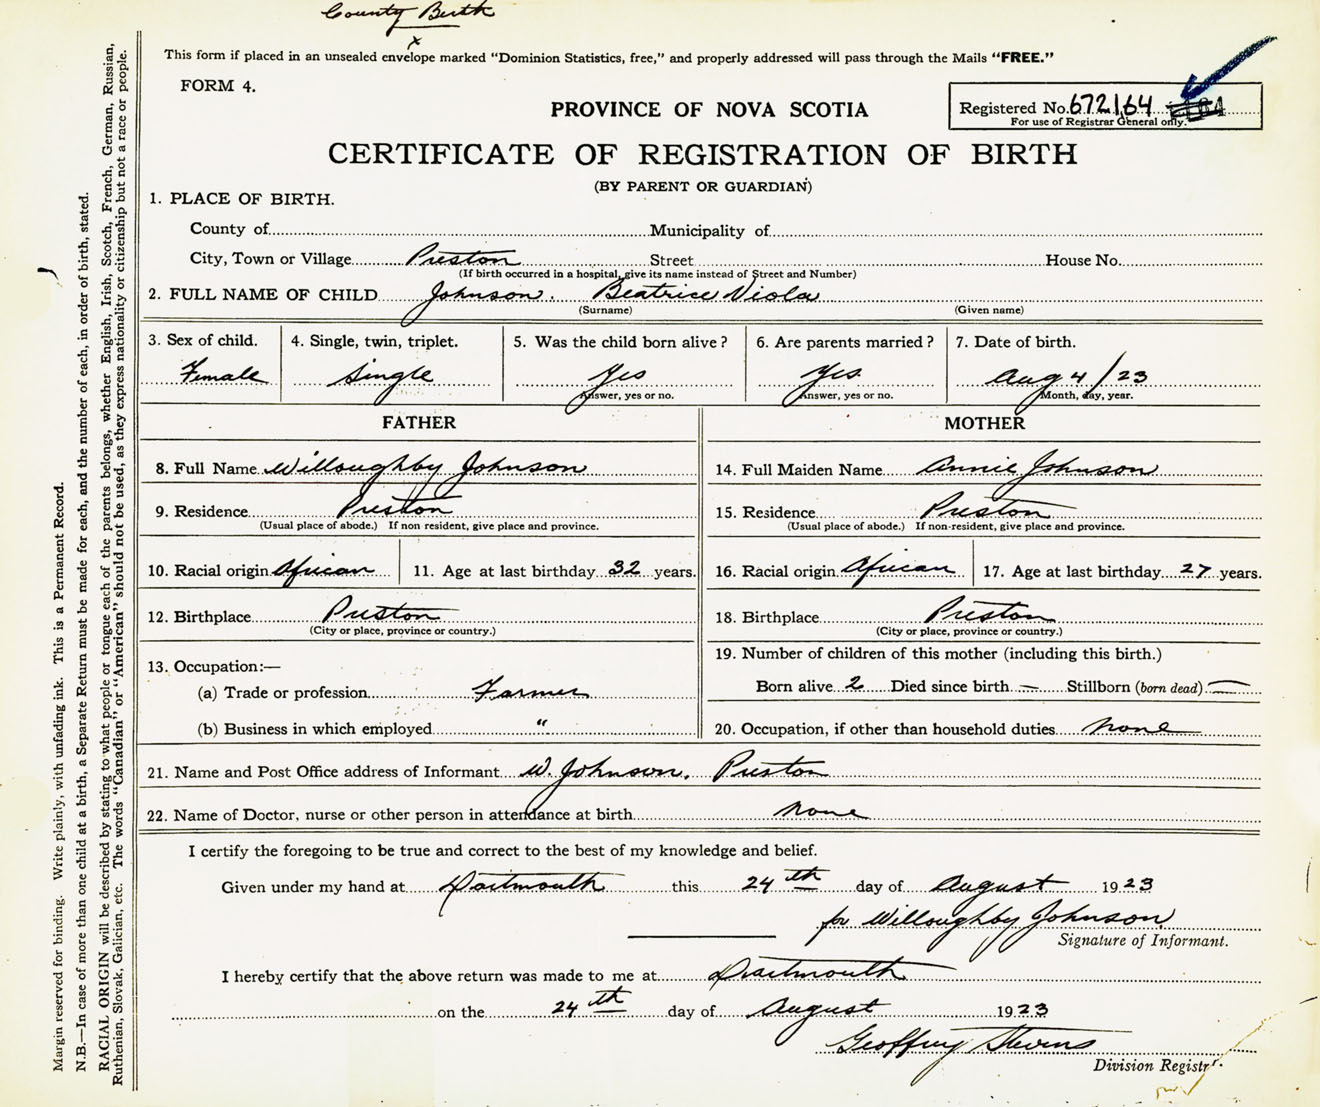 County Birth
x
This form if placed in an unsealed envelope marked “Dominion Statistics, free,” and properly addressed will pass through the Mails “FREE.”
FORM 4.
PROVINCE OF NOVA SCOTIA
Registered No. 672164
For use of Registrar General only.
CERTIFICATE OF REGISTRATION OF BIRTH
(BY PARENT OR GUARDIAN)
1. PLACE OF BIRTH.
County of Municipality of
City, Town or Village Preston Street House No.
(If birth occurred in a hospital, give its name instead of Street and Number)
2. FULL NAME OF CHILD Johnson. Beatrice Viola
(Surname) (Given name)
3. Sex of child. 4. Single, twin, triplet. 5. Was the child born alive? 6. Are parents married? 7. Date of birth.
Female Single Yes Yes Aug 4/23
Answer, yes or no. Answer, yes or no. Month, day, year.
FATHER MOTHER
8. Full Name Willoughby Johnson 14. Full Maiden Name Annie Johnson
9. Residence Preston 15. Residence Preston
(Usual place of abode.) If non resident, give place and province. (Usual place of abode.) If non-resident, give place and province.
10. Racial origin African 11. Age at last birthday 32 years. 16. Racial origin African 17. Age at last birthday 27 years.
12. Birthplace Preston 18. Birthplace Preston
(City or place, province or country.) (City or place, province or country.)
13. Occupation:— 19. Number of children of this mother (including this birth.)
(a) Trade or profession Farmer Born alive 2 Died since birth — Stillborn (born dead) —
(b) Business in which employed “ 20. Occupation, if other than household duties none
21. Name and Post Office address of Informant W. Johnson. Preston
22. Name of Doctor, nurse or other person in attendance at birth none
I certify the foregoing to be true and correct to the best of my knowledge and belief.
Given under my hand at Dartmouth this 24th day of August 1923
for Willoughby Johnson
Signature of Informant.
I hereby certify that the above return was made to me at Dartmouth
on the 24th day of August 1923
Geoffrey Stevens
Division Registr
Margin reserved for binding. Write plainly, with unfading ink. This is a Permanent Record.
N.B.—In case of more than one child at a birth, a Separate Return must be made for each, and the number of each, in order of birth, stated.
RACIAL ORIGIN will be described by stating to what people or tongue each of the parents belongs, whether English, Irish, Scotch, French, German, Russian,
Ruthenian, Slovak, Galician, etc. The words “Canadian” or “American” should not be used, as they express nationality or citizenship but not a race or people.